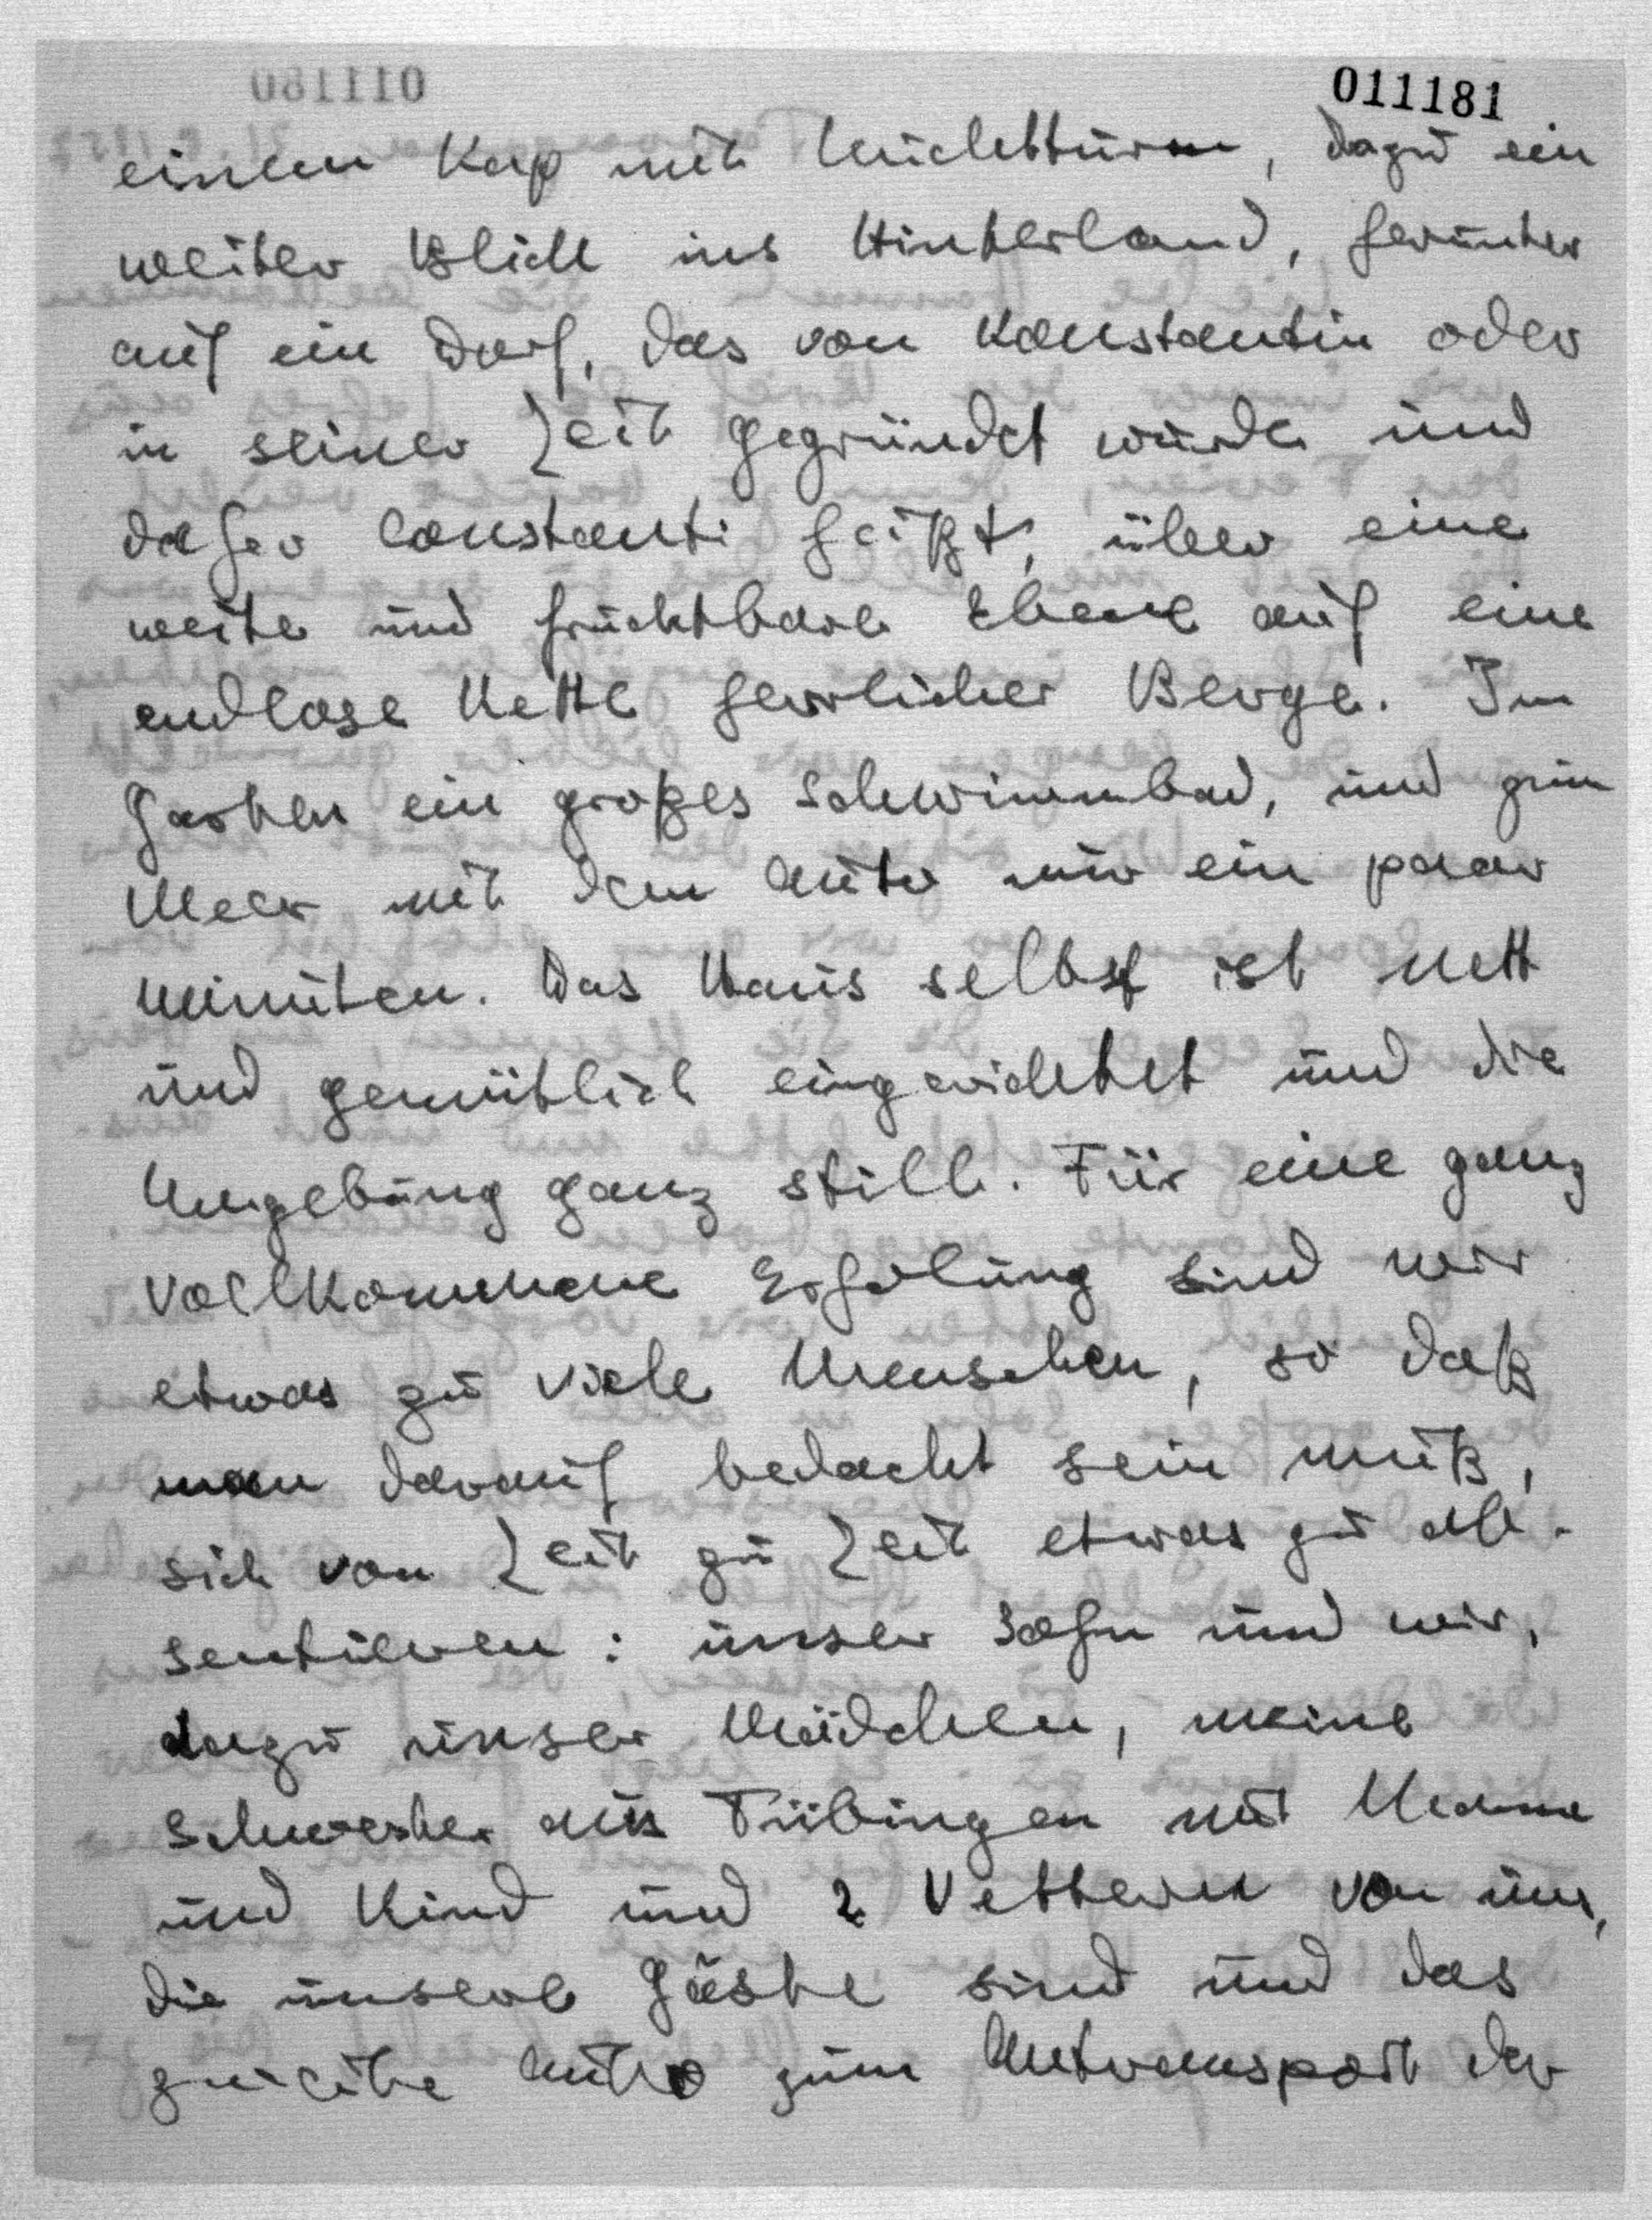 011181
einem Kap mit Leuchtturm, dazu ein
weiter Blick ins Hinterland, herunter
auf ein Dorf, das von Konstantin oder
in seiner Zeit gegründet wurde und
daher Constanti heißt, über eine
weite und fruchtbare Ebene auf eine
endlose Kette herrlicher Berge. Im
Garten ein großes Schwimmbad, und zum
Meer mit dem Auto nur ein paar
Minuten. Das Haus selbst ist nett
und gemütlich eingerichtet und die
Umgebung ganz still. Für eine ganz
vollkommene Erholung sind wir
etwas zu viele Menschen, so daß
man darauf bedacht sein muß,
sich von Zeit zu Zeit etwas zu ab-
sentieren: unser Sohn und wir,
dazu unser Mädchen, meine
Schwester aus Tübingen mit Mann
und Kind und 2 Vettern von uns,
die unsere Gäste sind und das
zweite Auto zum Antransport der